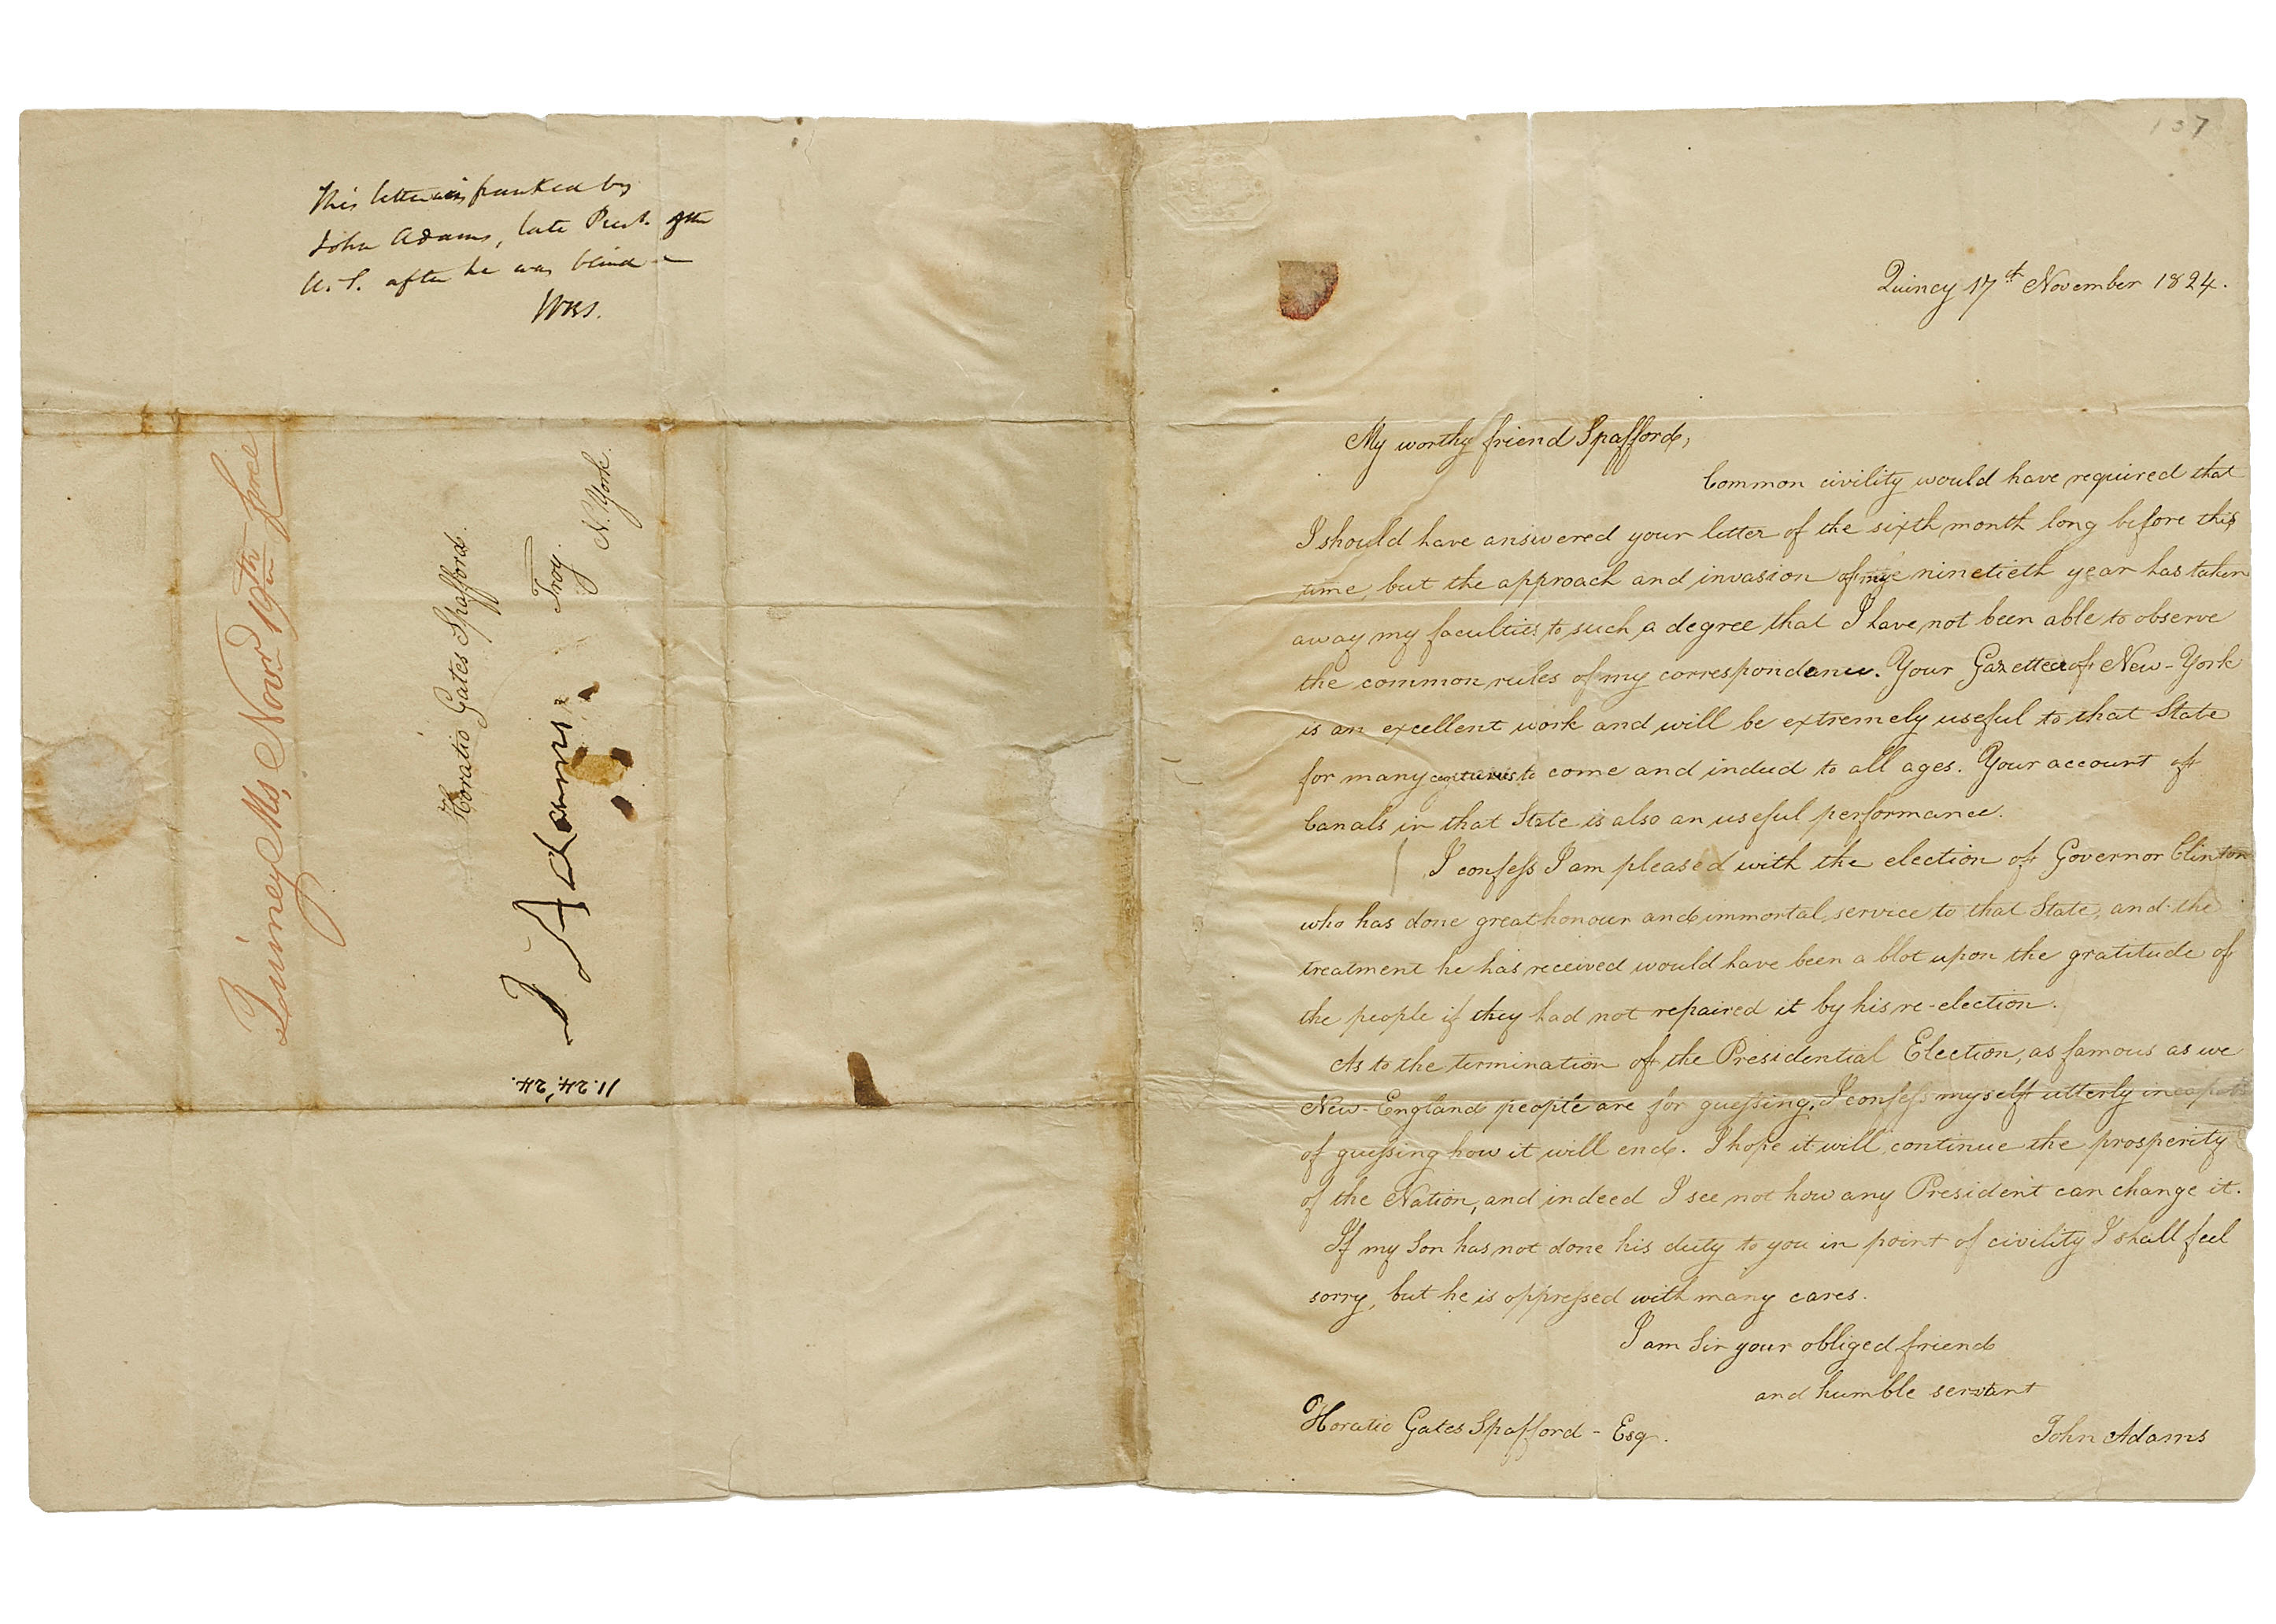 This letter is franked by
John Adams, late Prest. of the
U.S. after he was blind
Quincy Ms, Novr. 19th free
Horatio Gates Spafford.
Troy.
N. York.
J Adams
11.24.'24.
137
Quincy 17th November 1824.
My worthy friend Spafford,
Common civility would have required that
I should have answered your letter of the sixth month long before this
time, but the approach and invasion of my ninetieth year has taken
away my faculties to such a degree that I have not been able to observe
the common rules of my correspondance. Your Gazetteer of New-York
is an excellent work and will be extremely useful to that State
for many centuries to come and indeed to all ages. Your account of
Canals in that State is also an useful performance.
I confess I am pleased with the election of Governor Clinton
who has done great honour and immortal service to that State, and the
treatment he has received would have been a blot upon the gratitude of
the people if they had not repaired it by his re-election.
As to the termination of the Presidential Election, as famous as we
New-England people are for guessing, I confess myself utterly
of guessing how it will end. I hope it will continue the prosperity
of the Nation, and indeed I see not how any President can change it.
If my Son has not done his duty to you in point of civility I shall feel
sorry, but he is oppressed with many cares.
I am Sir your obliged friend
and humble servant
John Adams
Horatio Gates Spafford - Esq.